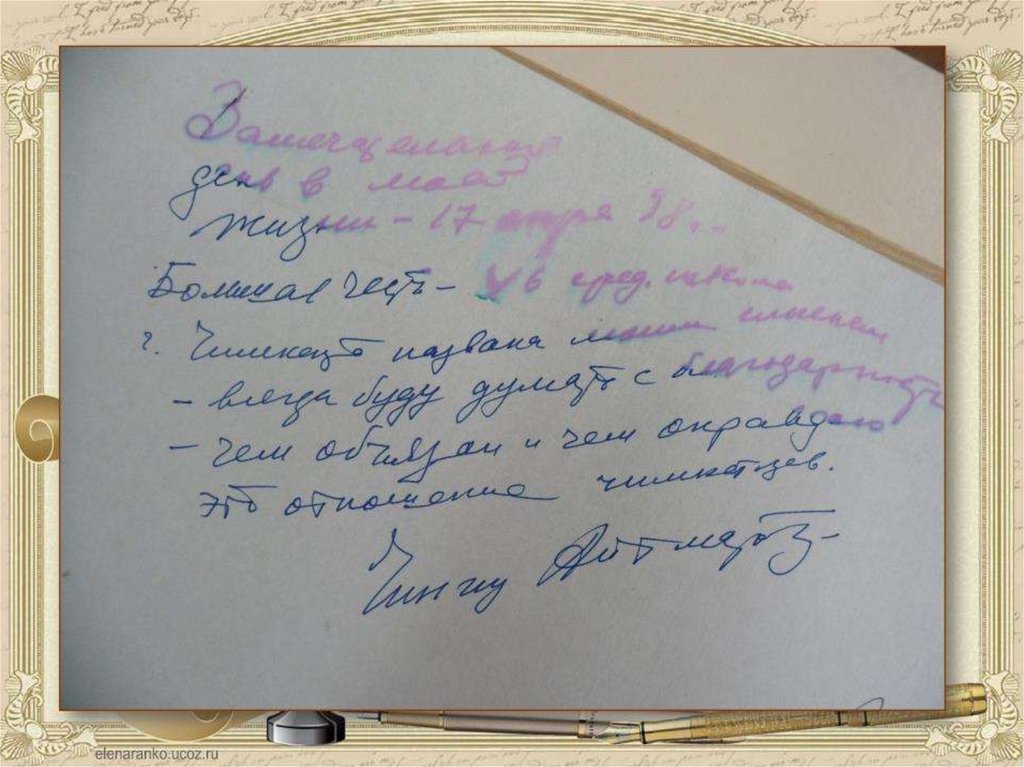 Замечательный
день в моей
жизни – 17 апре 98 г.
Большая честь – 6 сред. школа
г. Чимкента названа моим именем
– всегда буду думать с благодарностью
– чем обязан и чем оправдаю
это отношение чимкентцев.
Чингиз Айтматов
elenaranko.ucoz.ru